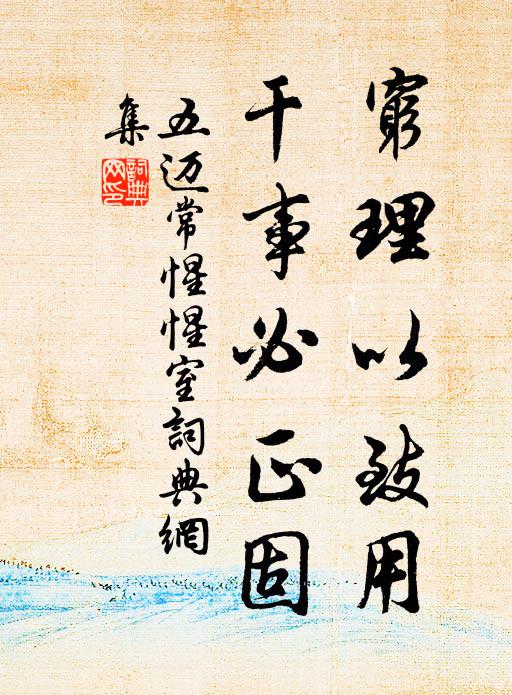 窮理以致用
干事必正固
五迈常惺惺室詞典網
集
詞典
网印